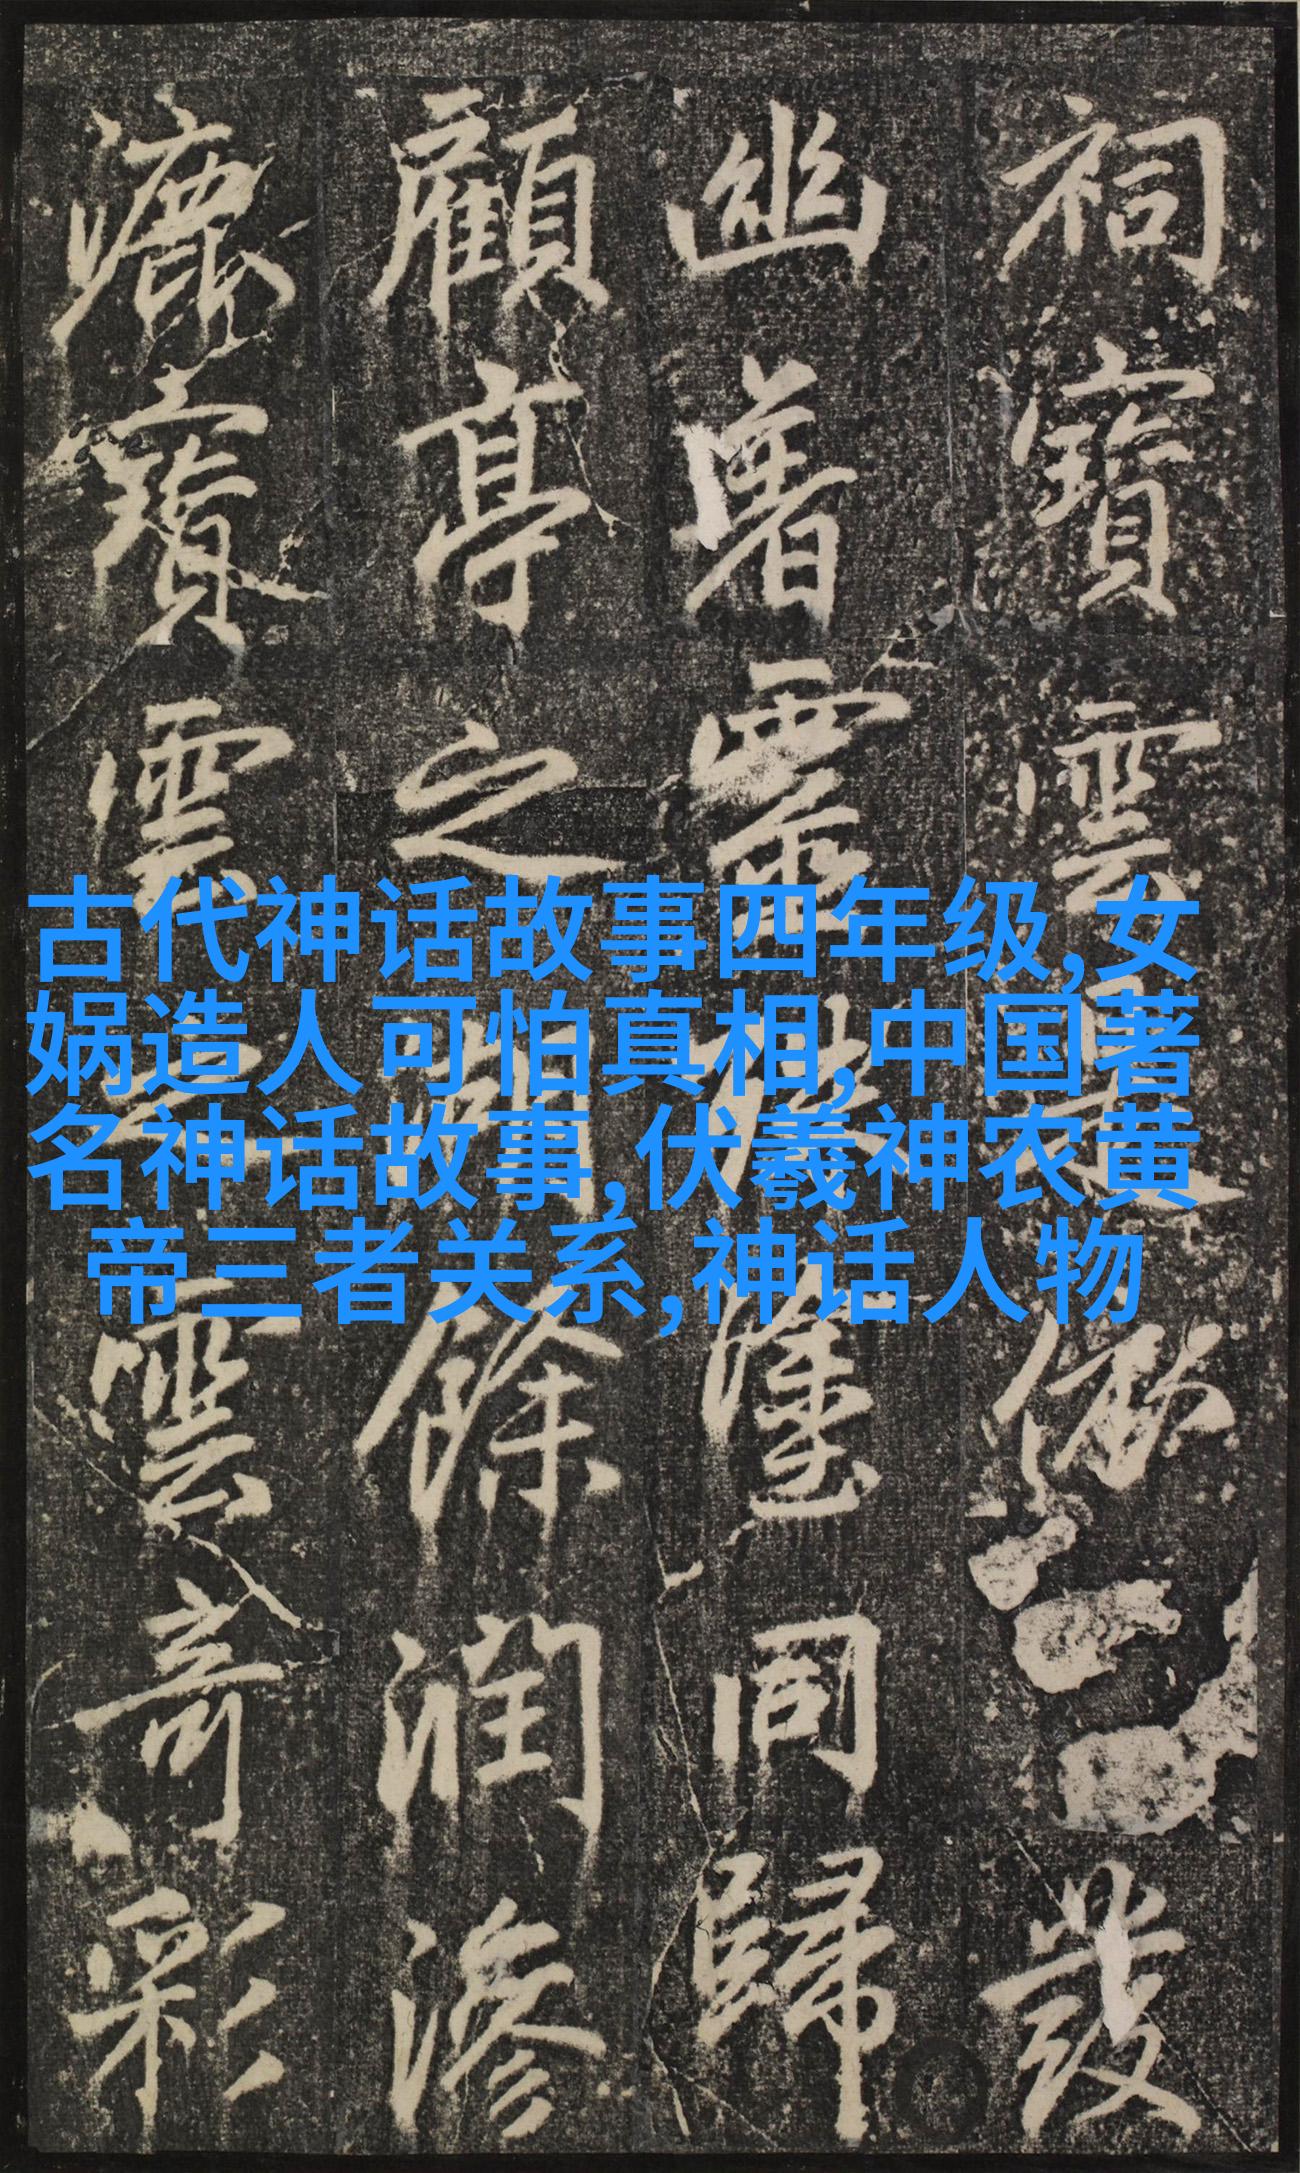 古代神话故事四年级,女
娲造人可怕真相,中国著
名神话故事,伏羲神农黄
帝三者关系,神话人物
祠寶雲發
幽署靈同歸
顧亭之餘潤滲
漉寶雲雲奇彩